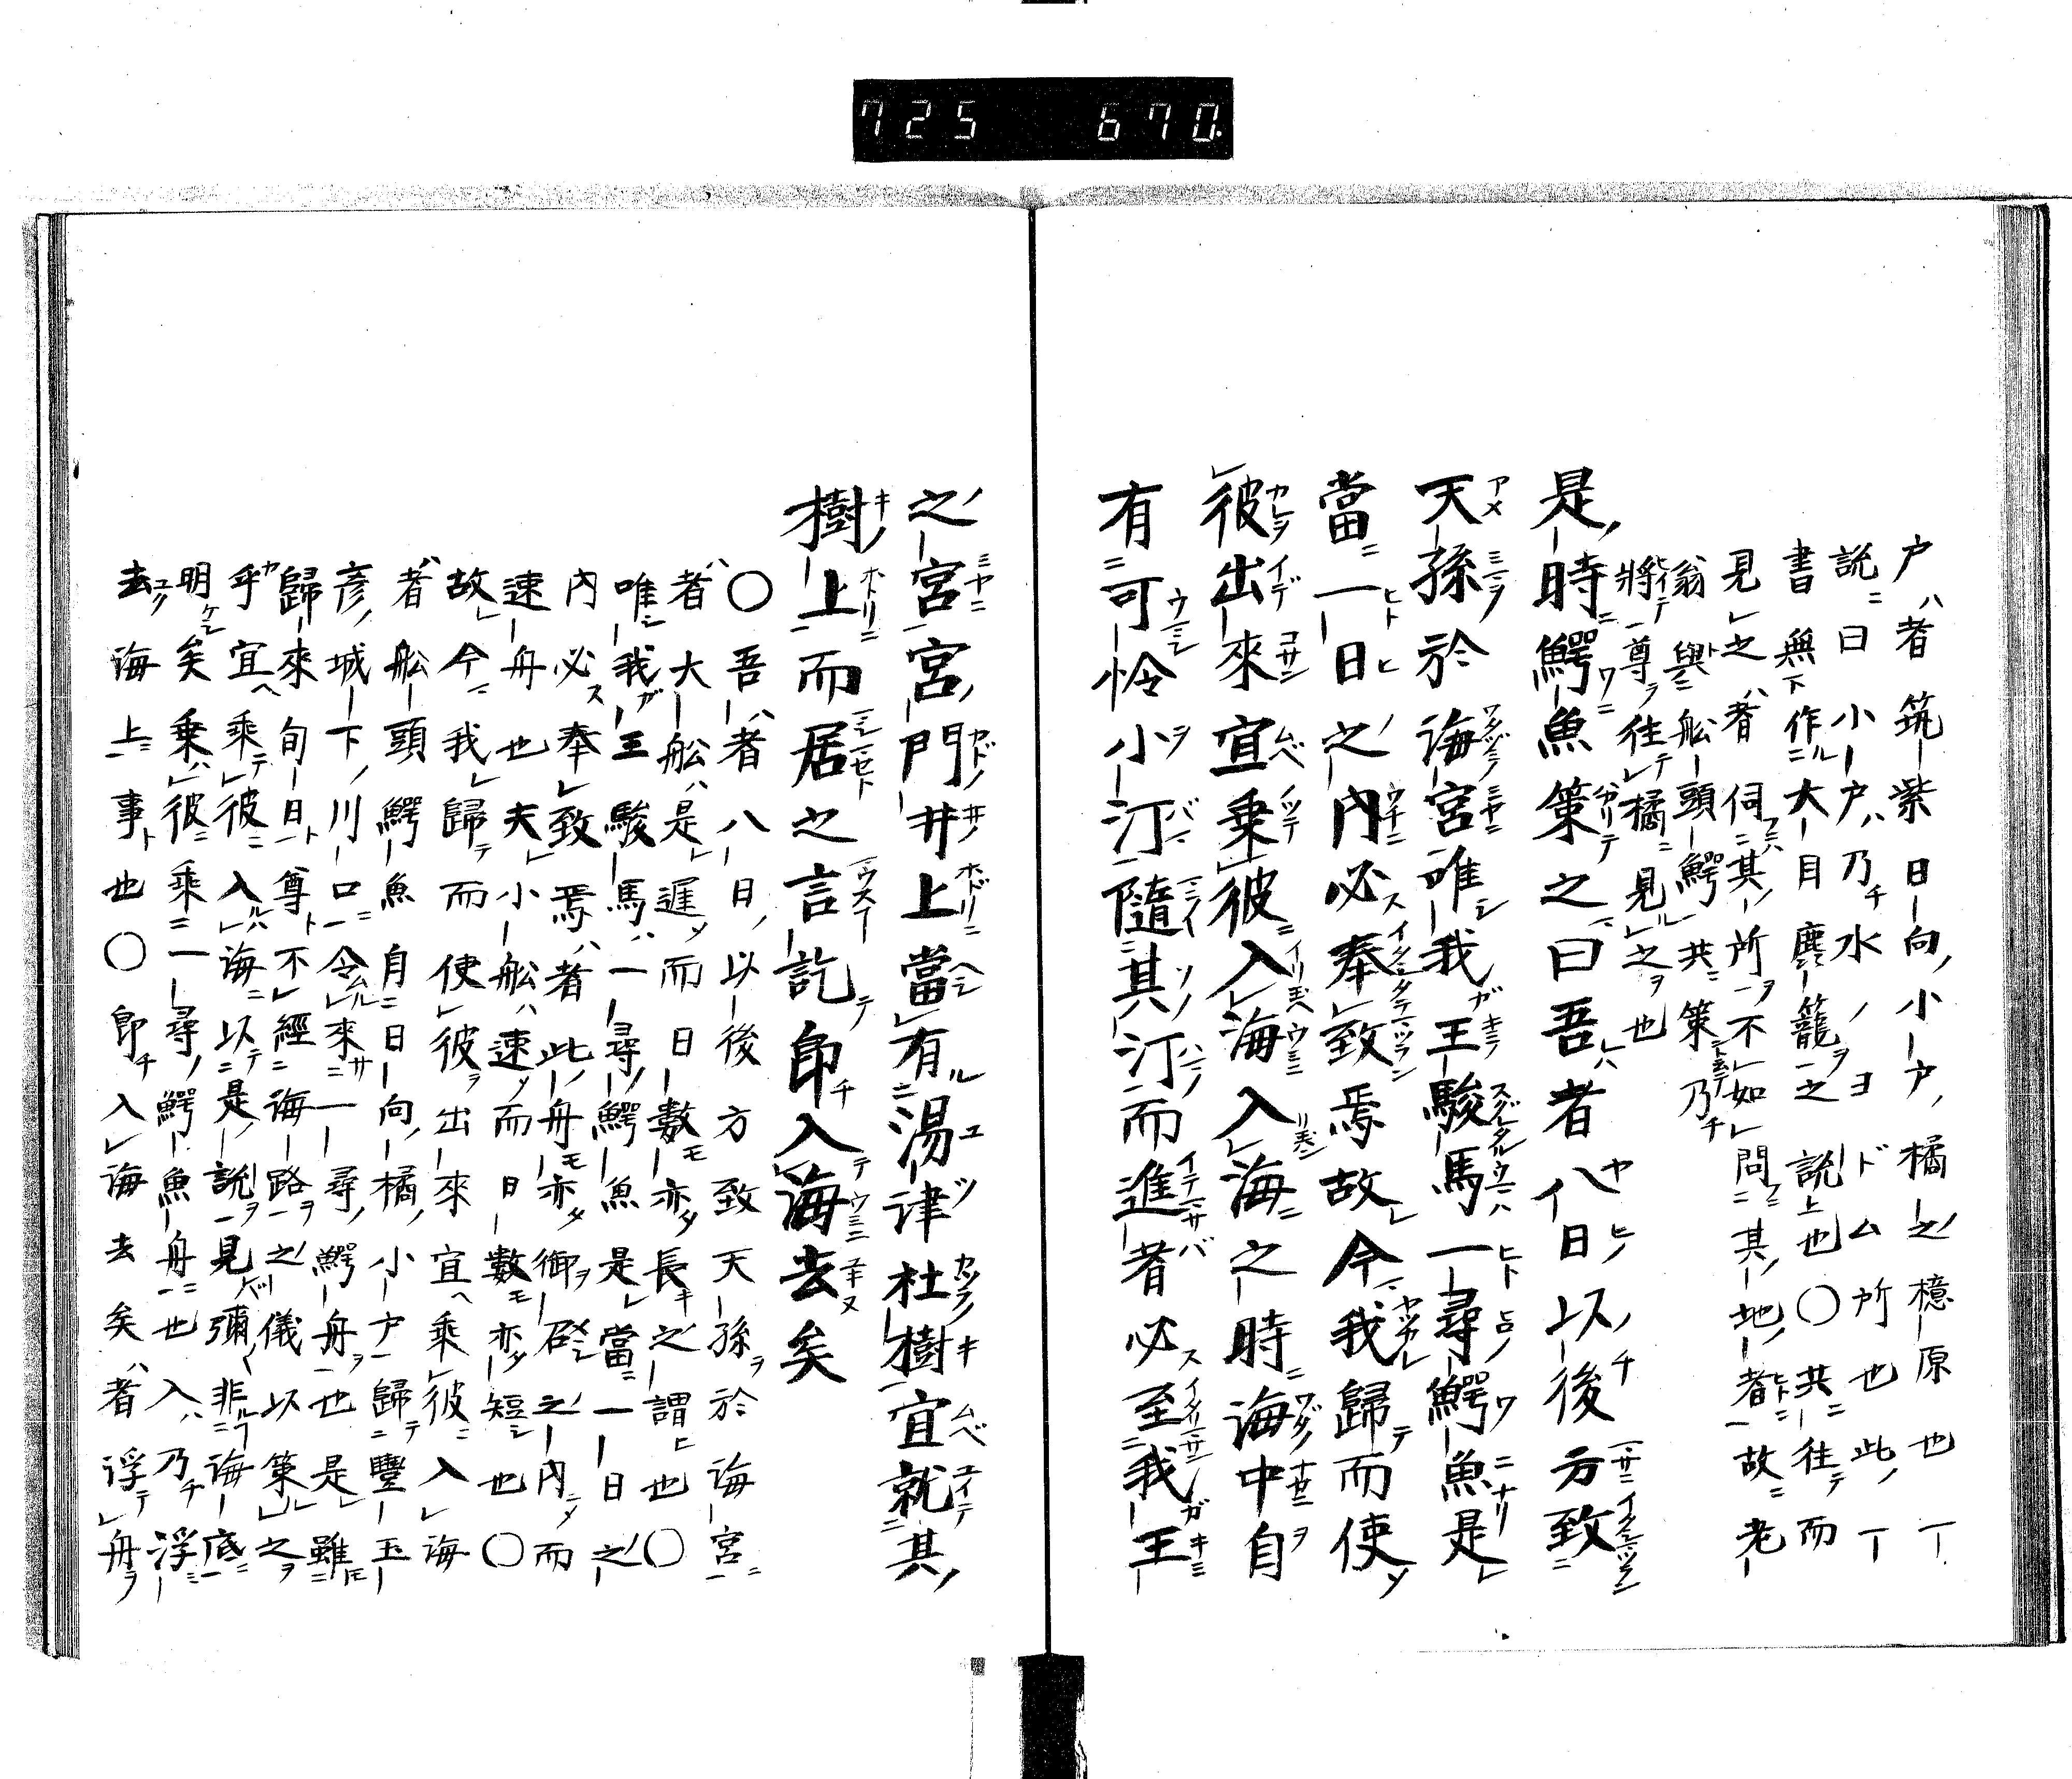 725 670
戸者筑紫日向小戸橘之檍原也一
説曰小戸乃水ノヨドム所也此一
書無作大目麁籠之説也〇共往而
見之者伺其所不如問其地者故老
翁與舩頭鰐共策乃
將尊往橘見之也
是時鰐魚策之曰吾者八日以後方致
天孫於海宮唯我王駿馬一尋鰐魚是
當一日之内必奉致焉故今我歸而使
彼出來宜乗彼入海入海之時海中自
有可怜小汀隨其汀而進者必至我王
之宮宮門井上當有湯津杜樹宜就其
樹上而居之言訖即入海去矣
〇吾者八日以後方致天孫於海宮
者大舩是遅而日數亦長之謂也〇
唯我王駿馬一尋鰐魚是當一日之
内必奉致焉者此舟亦御召之内而
速舟也夫小舩速而日數亦短也〇
故今我歸而使彼出來宜乘彼入海
者舩頭鰐魚自日向橘小戸歸豐玉
彦城下川口令來一尋鰐舟也是雖
歸來旬日尊不經海路之儀以策之
乎宜乘彼入海以是説見彌非海底
明矣乗彼乘一尋鰐魚舟也入乃浮
去海上事也〇即入海去矣者浮舟